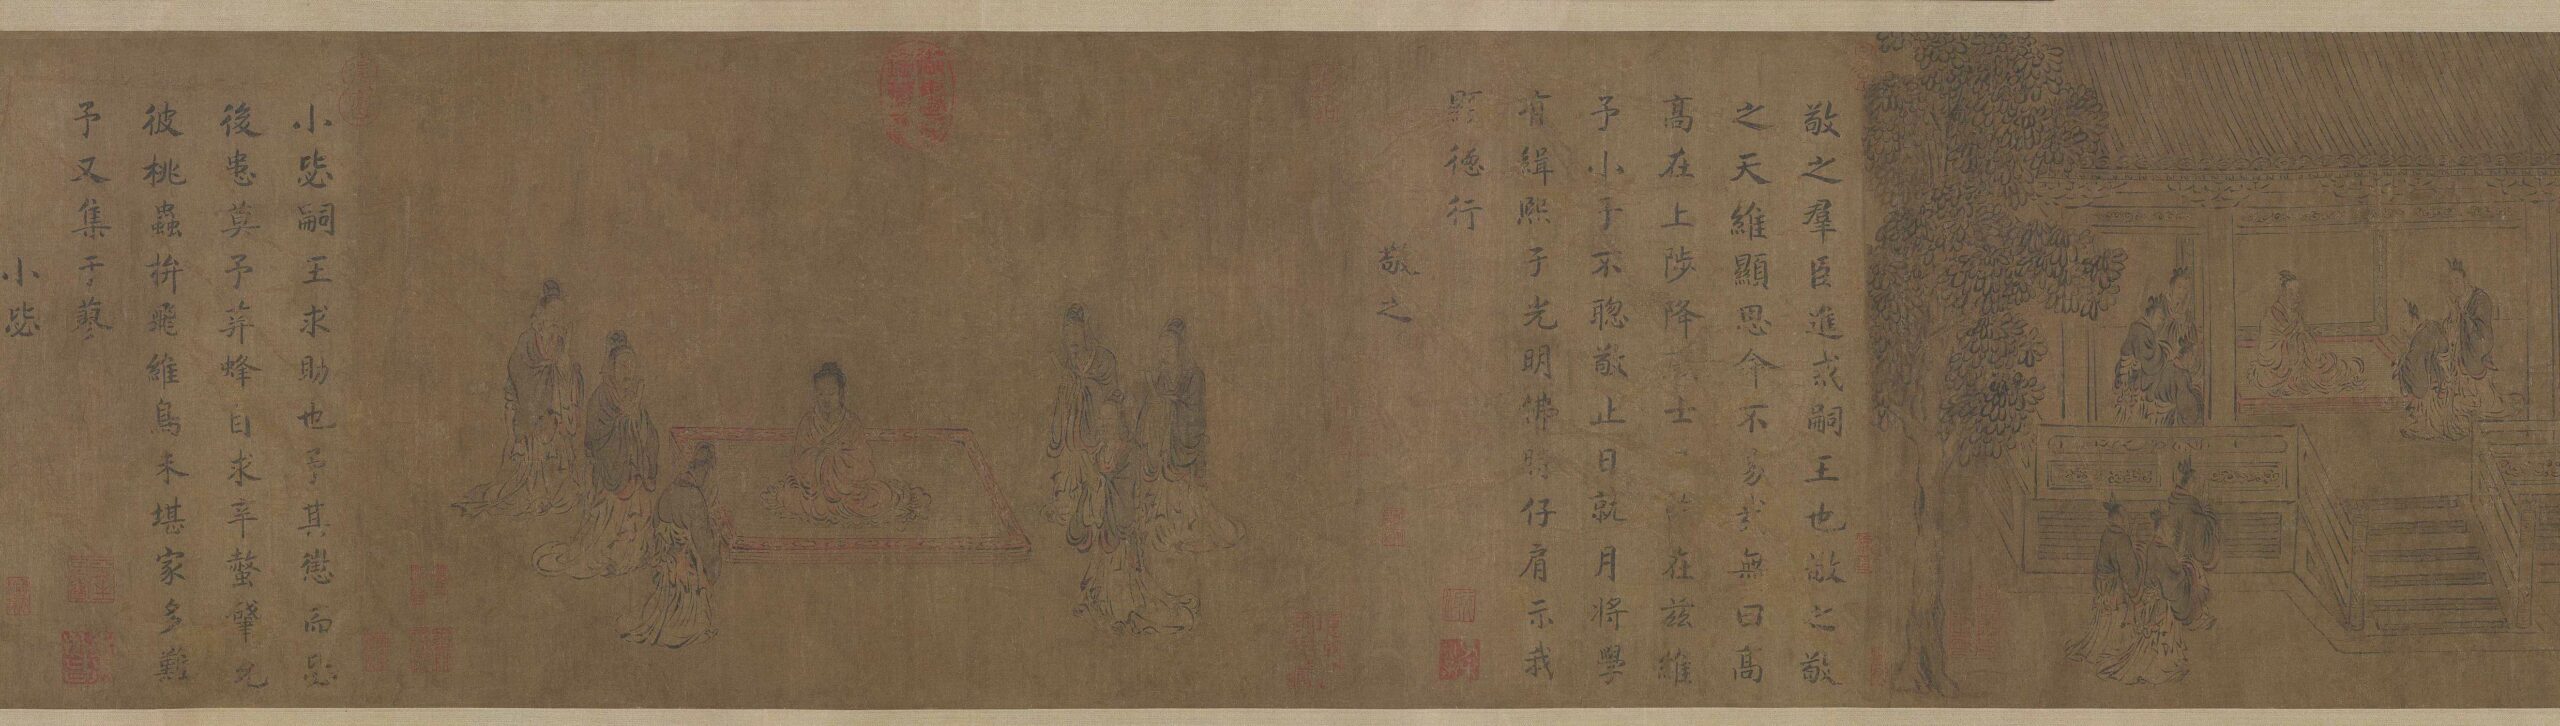 敬之羣臣進戒嗣王也敬之敬
之天維顯思命不易哉無曰高
高在上陟降厥士日監在茲維
予小子不聰敬止日就月將學
有緝熙于光明佛時仔肩示我
顯德行
敬之
小毖嗣王求助也予其懲而毖
後患莫予荓蜂自求辛螫肇允
彼桃蟲拚飛維鳥未堪家多難
予又集于蓼
小毖